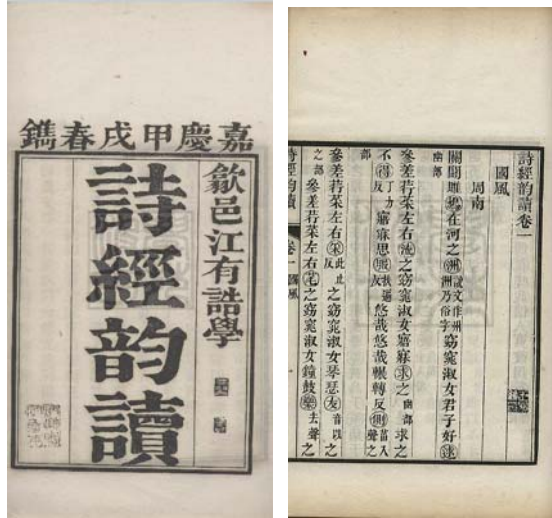 嘉慶甲戌春鐫
歙邑江有誥學
詩經韵讀
詩經韵讀卷一
國風
周南
關關雎鳩在河之洲說文作州洲乃俗字窈窕淑女君子好逑
幽部
參差荇菜左右流之窈窕淑女寤寐求之幽部求之
不得丁力反寤寐思服扶逼反悠哉悠哉輾轉反側入聲之
部
參差荇菜左右采此止反之窈窕淑女琴瑟友音以之
之部參差荇菜左右芼之窈窕淑女鐘鼓樂去聲之
詩經韵讀 卷一 國風